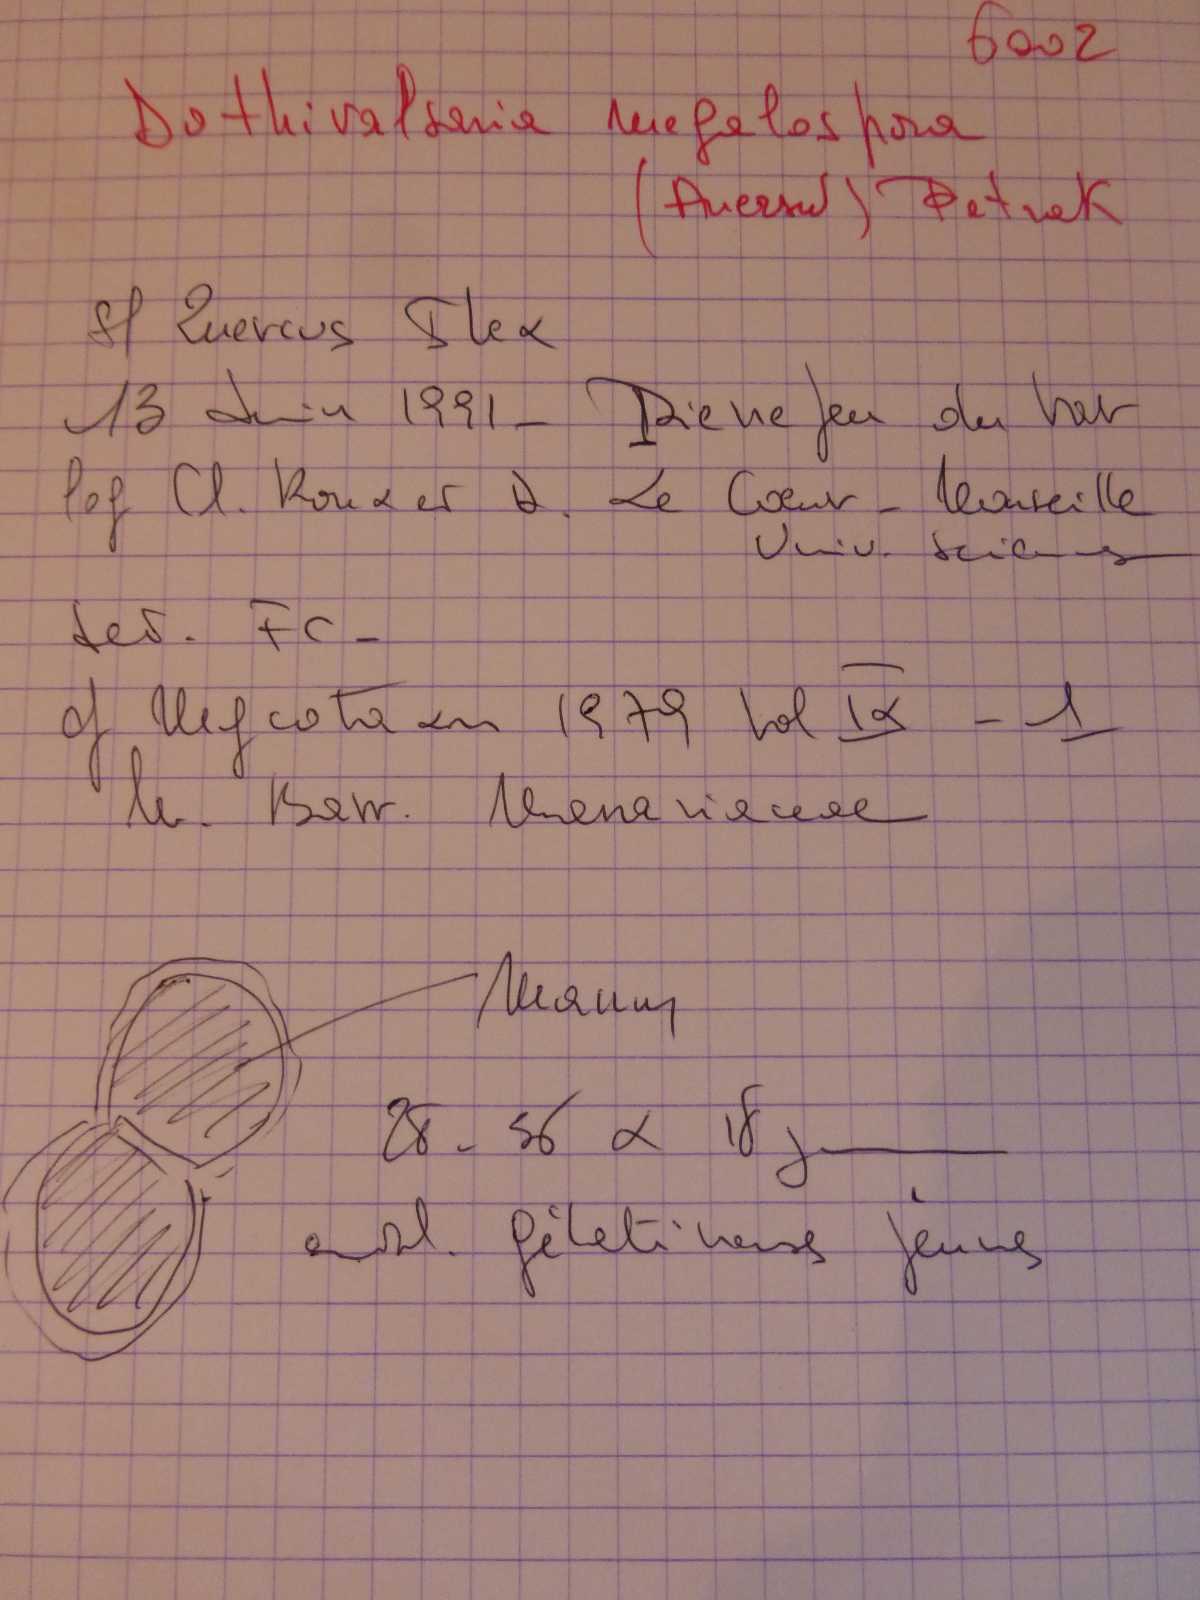 6002
Dothivalsaria megalospora
(Auersw) Petrak
S/ Quercus Ilex
13 Juin 1991 - Pierrefeu du Var
leg Cl. Roux et D. Le Coeur - Marseille
Univ. Sciences
det. FC -
cf Mycotaxon 1979 Vol IX - 1
M. Barr. Massariaceae
brun
28 - 36 x 18 µ
envel. gélatineuse jeunes